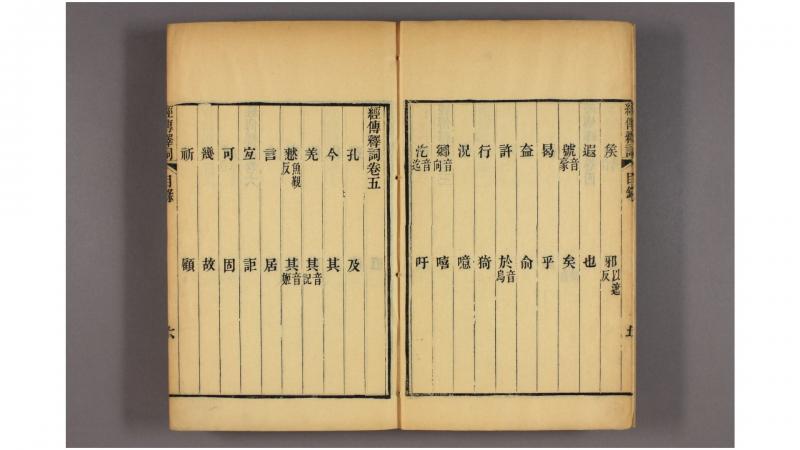 經傳釋詞 目錄 五
矦 邪以遮反
遐 也
號音豪 矣
曷 乎
盍 俞
許 於音烏
行 猗
況 噫
鄉音向 嘻
汔音迄 吁
經傳釋詞卷五
孔 及
今 其
羌 其音記
憖魚覲反 其音姬
言 居
宜 詎
可 固
幾 故
祈 顧
經傳釋詞 目錄 六